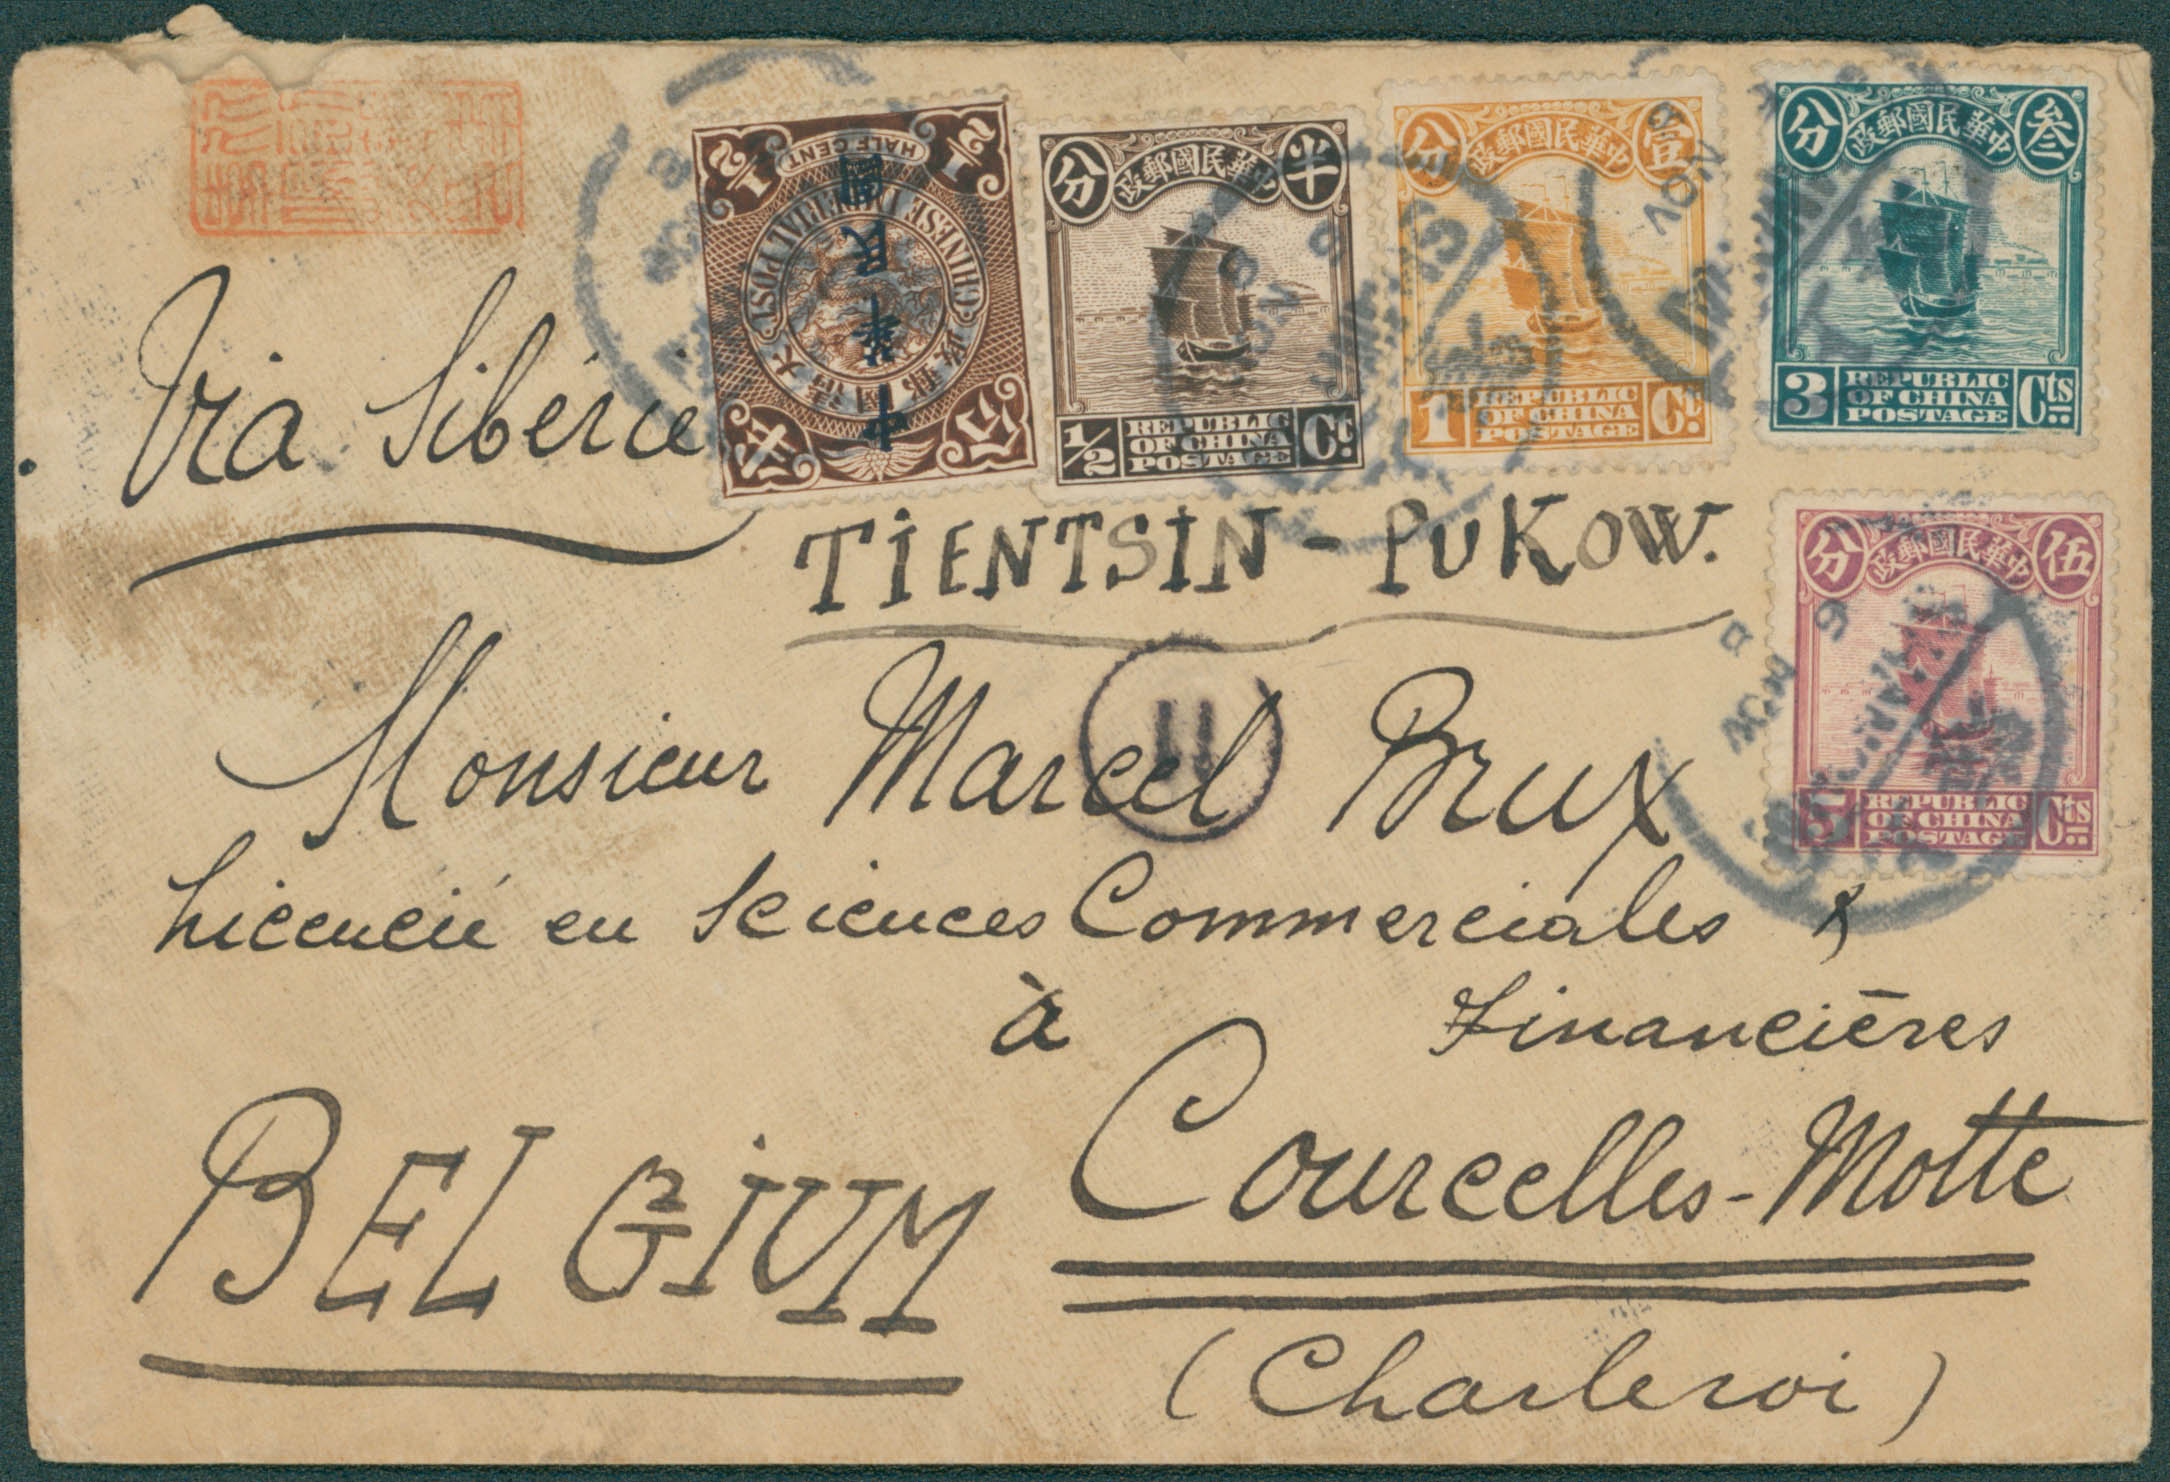 Via Sibérie
TIENTSIN - PUKOW.
Monsieur Marcel Brux
Licencié en Sciences Commerciales &
Financières
à
Courcelles-Motte
(Charleroi)
BELGIUM
HALF CENT
CHINESE IMPERIAL POST
大清國郵政
半分
中華民國
中華民國郵政
半分
1/2 REPUBLIC OF CHINA POSTAGE Ct.
中華民國郵政
壹分
1 REPUBLIC OF CHINA POSTAGE Ct.
中華民國郵政
叁分
3 REPUBLIC OF CHINA POSTAGE Cts
中華民國郵政
伍分
5 REPUBLIC OF CHINA POSTAGE Cts
8 NOV
11